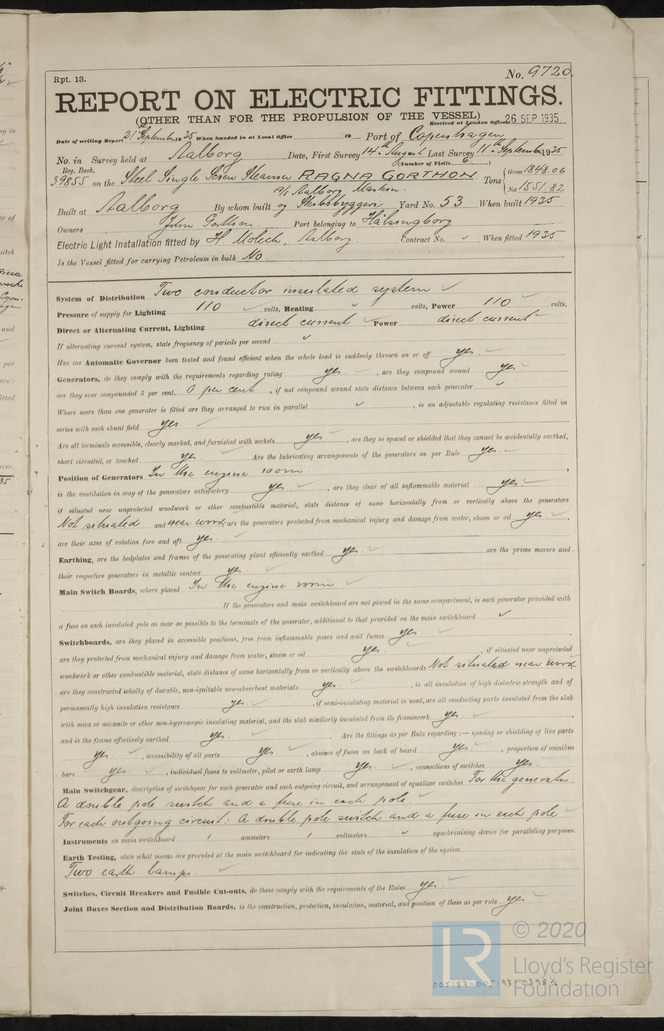 Rpt. 13.
No. 9720.
REPORT ON ELECTRIC FITTINGS.
(OTHER THAN FOR THE PROPULSION OF THE VESSEL)
Received at London Office 26 SEP 1935
Date of writing Report 21st September 1935 When handed in at Local Office 19 Port of Copenhagen
No. in Survey held at Aalborg Date, First Survey 14th August Last Survey 11th September 1935
Reg. Book. (Number of Visits 6)
39855 on the Steel Single Screw Steamer RAGNA GORTHON Tons { Gross 1848.06 Net 1551.82
Built at Aalborg By whom built A/S Aalborg Maskin- og Skibsbyggeri Yard No. 53 When built 1935
Owners John Gorthon Port belonging to Hälsingborg
Electric Light Installation fitted by H. Mølech, Aalborg Contract No. When fitted 1935
Is the Vessel fitted for carrying Petroleum in bulk No.
System of Distribution Two conductor insulated system
Pressure of supply for Lighting 110 volts, Heating " volts, Power 110 volts.
Direct or Alternating Current, Lighting direct current Power direct current
If alternating current system, state frequency of periods per second "
Has the Automatic Governor been tested and found efficient when the whole load is suddenly thrown on or off yes
Generators, do they comply with the requirements regarding rating yes, are they compound wound yes
are they over compounded 5 per cent. 0 per cent, if not compound wound state distance between each generator "
Where more than one generator is fitted are they arranged to run in parallel ", is an adjustable regulating resistance fitted in
series with each shunt field yes
Are all terminals accessible, clearly marked, and furnished with sockets yes, are they so spaced or shielded that they cannot be accidentally earthed,
short circuited, or touched yes Are the lubricating arrangements of the generators as per Rule yes
Position of Generators In the engine room
is the ventilation in way of the generators satisfactory yes, are they clear of all inflammable material yes
if situated near unprotected woodwork or other combustible material, state distance of same horizontally from or vertically above the generators
Not situated and near wood, are the generators protected from mechanical injury and damage from water, steam or oil yes,
are their axes of rotation fore and aft yes
Earthing, are the bedplates and frames of the generating plant efficiently earthed yes are the prime movers and
their respective generators in metallic contact yes
Main Switch Boards, where placed In the engine room
If the generators and main switchboard are not placed in the same compartment, is each generator provided with
a fuse on each insulated pole as near as possible to the terminals of the generator, additional to that provided on the main switchboard "
Switchboards, are they placed in accessible positions, free from inflammable gases and acid fumes yes
are they protected from mechanical injury and damage from water, steam or oil yes, if situated near unprotected
woodwork or other combustible material, state distance of same horizontally from or vertically above the switchboards Not situated near wood
are they constructed wholly of durable, non-ignitable non-absorbent materials yes, is all insulation of high dielectric strength and of
permanently high insulation resistance yes, if semi-insulating material is used, are all conducting parts insulated from the slab
with mica or micanite or other non-hygroscopic insulating material, and the slab similarly insulated from its framework yes,
and is the frame effectively earthed yes Are the fittings as per Rule regarding:— spacing or shielding of live parts
yes, accessibility of all parts yes, absence of fuses on back of board yes, proportion of omnibus
bars yes, individual fuses to voltmeter, pilot or earth lamp yes, connections of switches yes
Main Switchgear, description of switchgear for each generator and each outgoing circuit, and arrangement of equalizer switches For the generator:
A double pole switch and a fuse in each pole.
For each outgoing circuit: A double pole switch and a fuse in each pole
Instruments on main switchboard 1 ammeters 1 voltmeters " synchronising device for paralleling purposes.
Earth Testing, state what means are provided at the main switchboard for indicating the state of the insulation of the system
Two earth lamps.
Switches, Circuit Breakers and Fusible Cut-outs, do these comply with the requirements of the Rules yes
Joint Boxes Section and Distribution Boards, is the construction, protection, insulation, material, and position of these as per rule yes
LR
© 2020
Lloyd's Register
Foundation